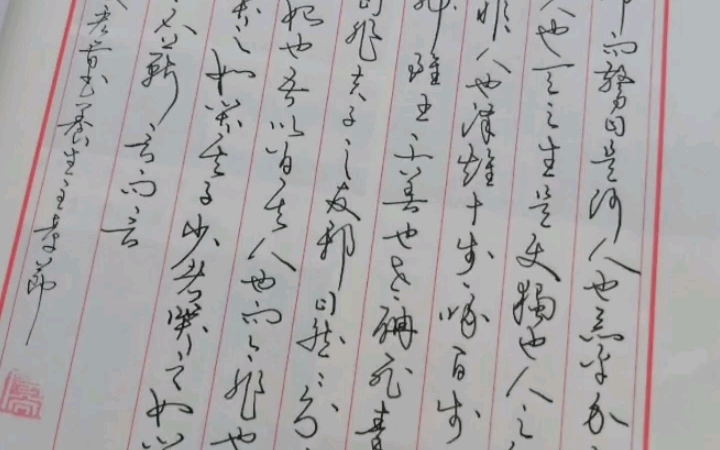 師而驚曰是何人也惡乎介
人也天之生是使獨也人之
非人也澤雉十步啄百步
神雖王不善也老聃死秦
曰非夫子之友邪曰然然則
始也吾以为其人也而今非也
哭之如哭其子少者哭之如哭
不蘄言而言
書養生主章節